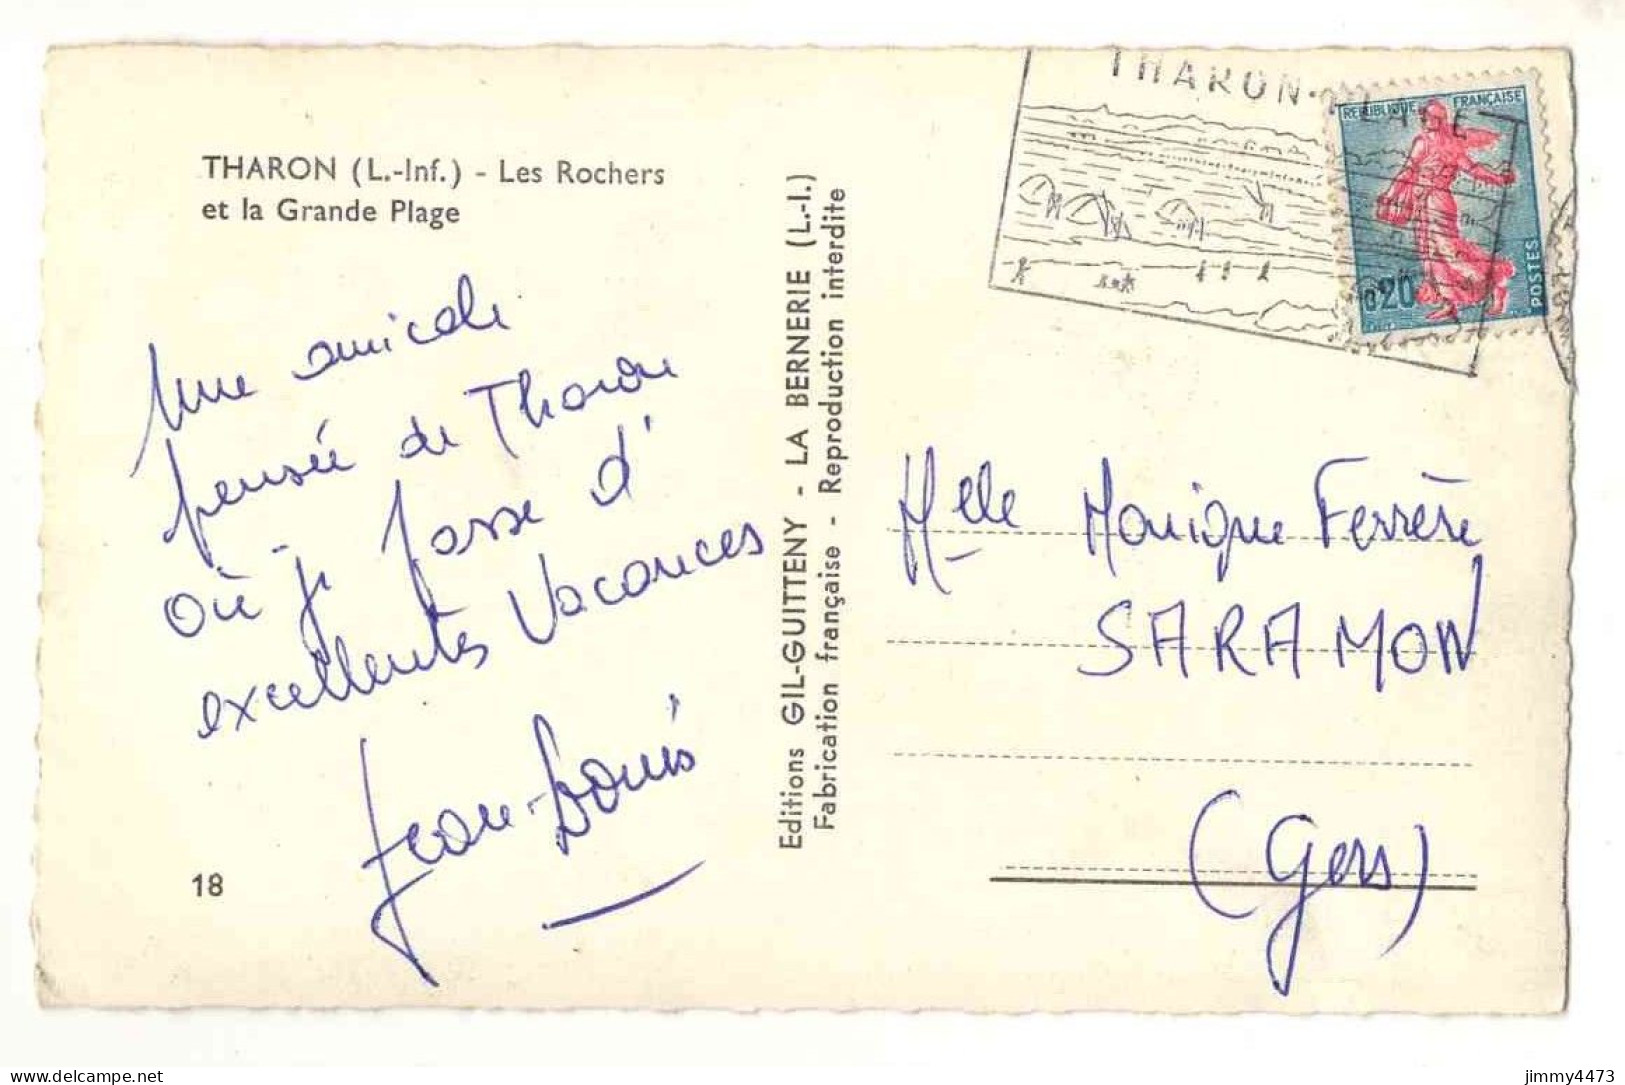 THARON (L.-Inf.) - Les Rochers
et la Grande Plage
Une amicale
pensée de Tharon
où je passe d'
excellentes vacances
Jean-Louis
18
Editions GIL-GUITTENY - LA BERNERIE (L.-I.)
Fabrication française - Reproduction interdite
THARON-PLAGE
REPUBLIQUE FRANÇAISE
0,20
POSTES
Melle Monique Ferrère
SARAMON
(Gers)
delcampe.net
jimmy4473